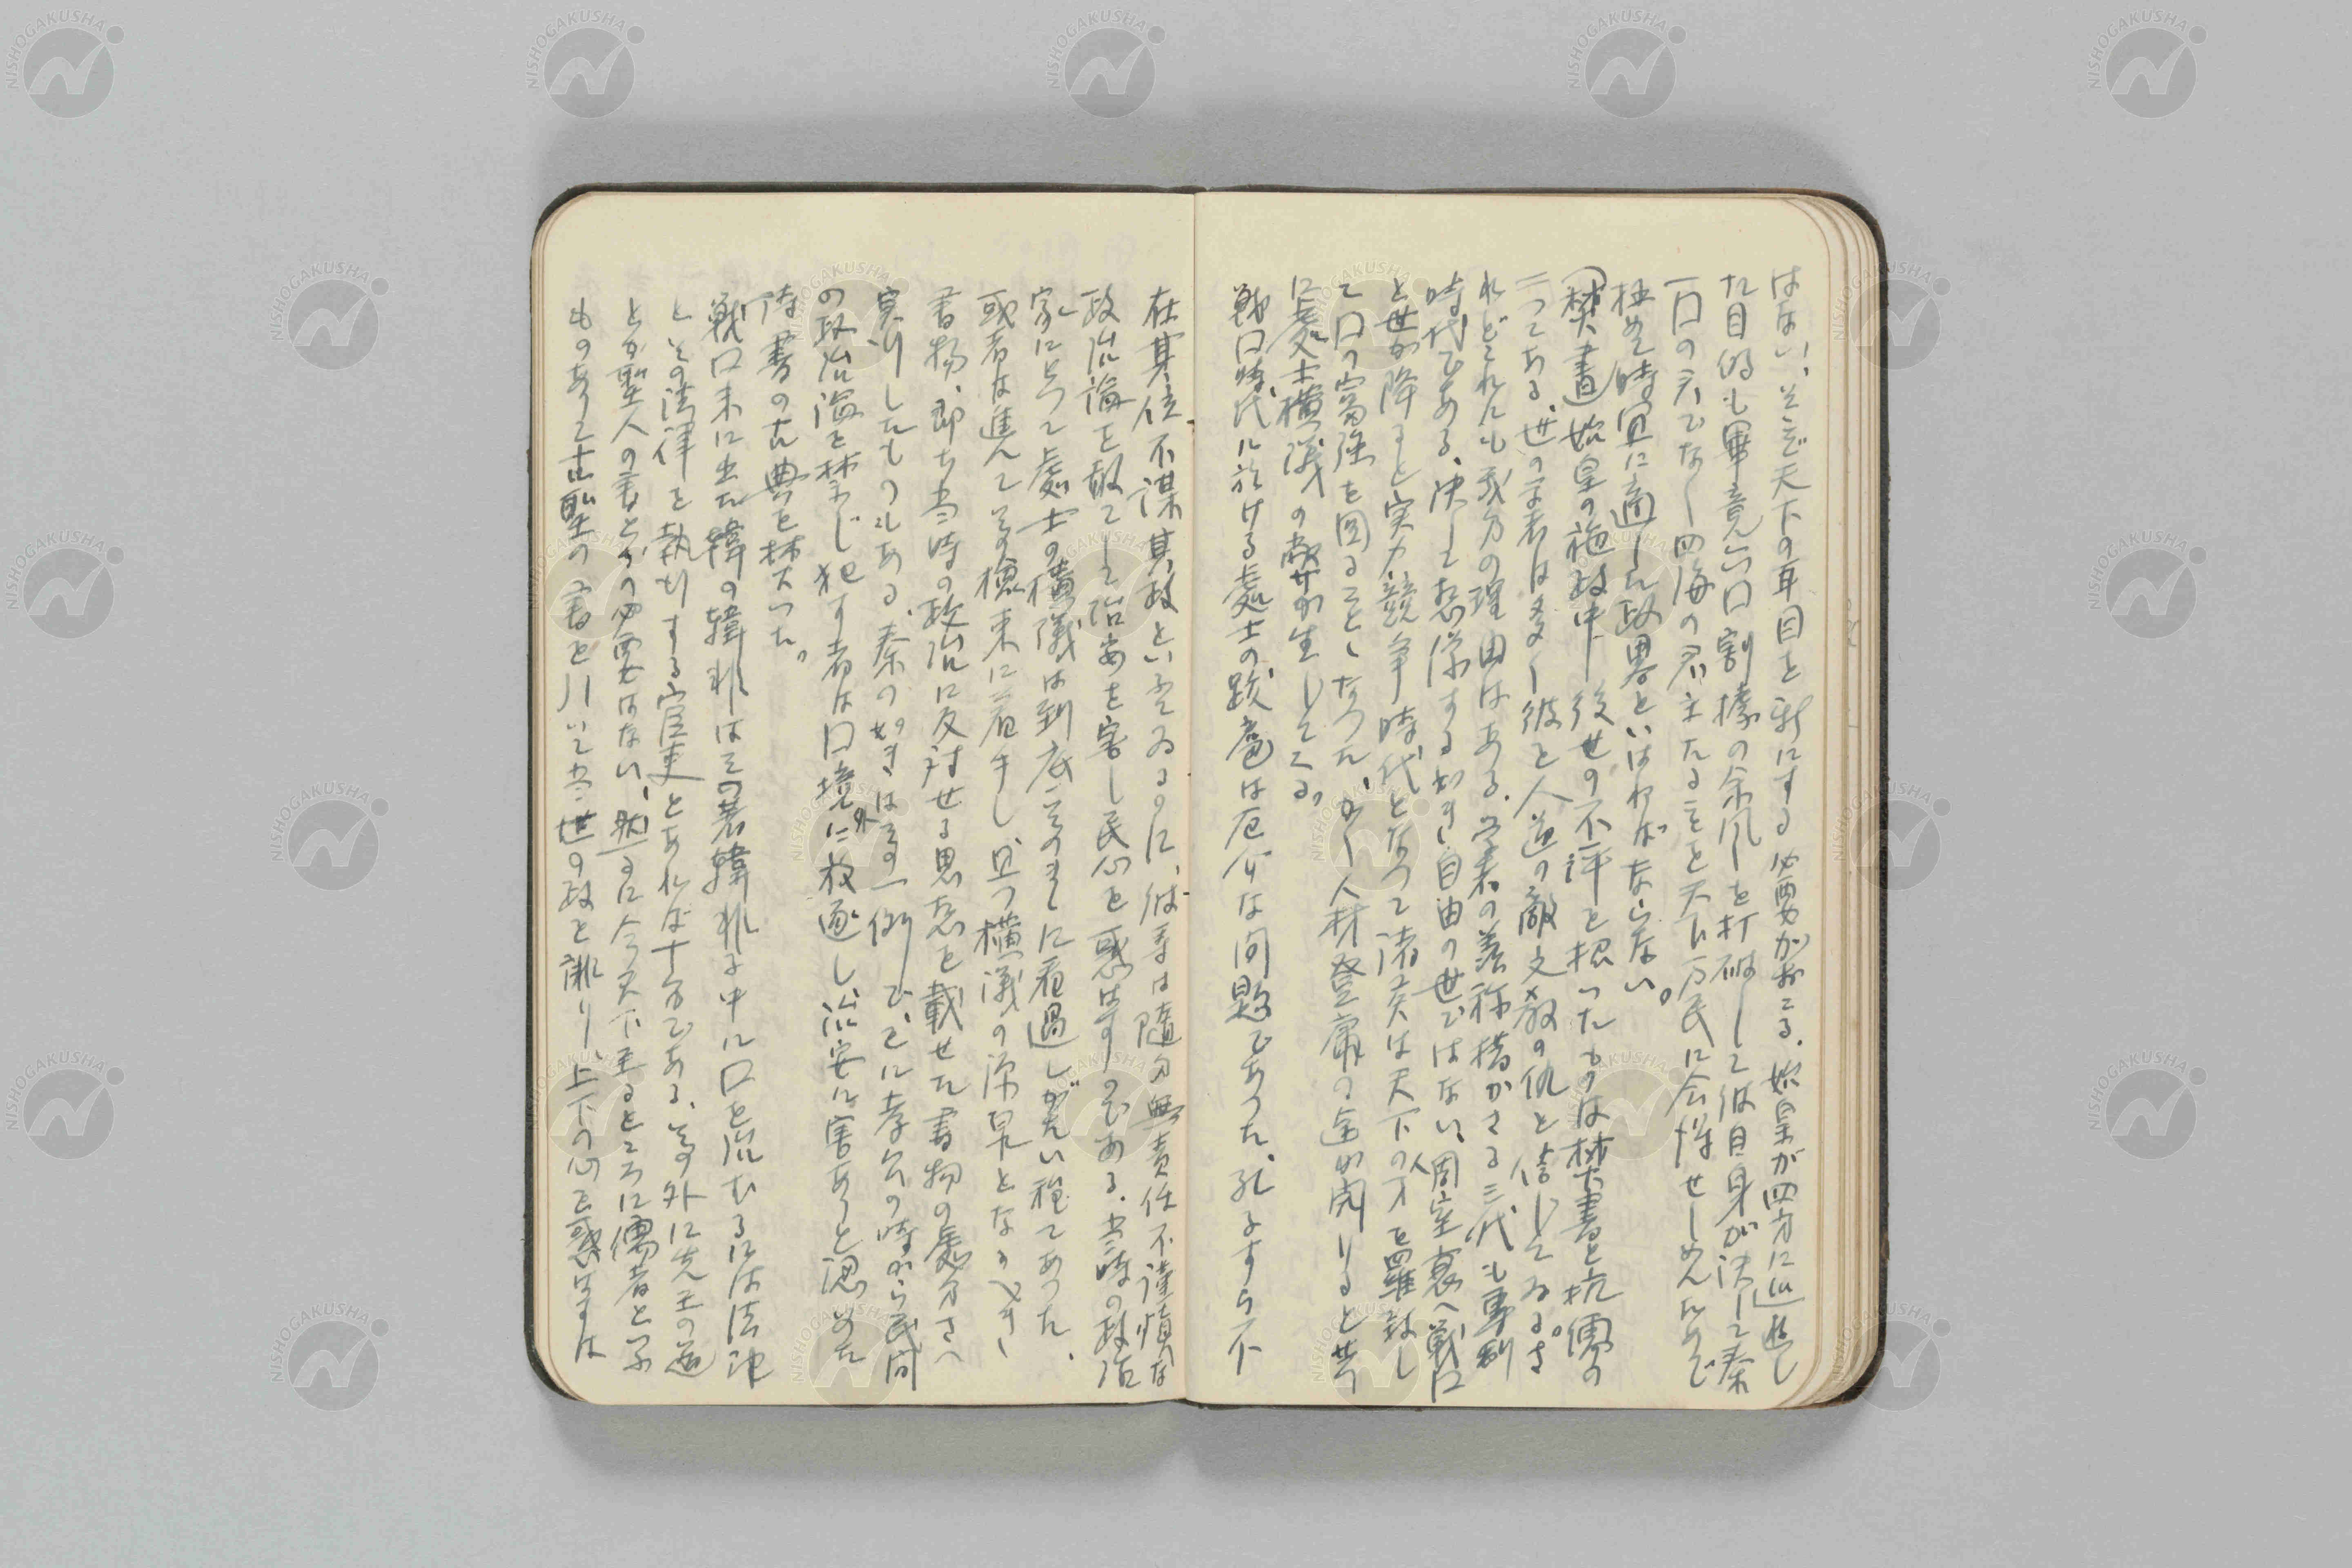 はない、そこで天下の耳目を新にする必要がおこる、始皇が四方に巡遊し
た目的も畢竟六口割拠の余風を打破して彼自身が決して秦
一口の君でなく四海の君主たることを天下万民に会得せしめんためで
極めて時宜に適した政略といはねばならない。
焚書 始皇の施政中 後世の不評を招いたものは焚書と坑儒の
二つである、世の学者は多く彼を人道の敵文教の仇と信じてゐる。さ
れどこれにも幾分の理由はある、学者の羨称措かざる三代も専制
時代である、決して想像する如き自由の世ではない、周室衰へ戦に
と世が降ると実力競争時代となつて諸侯は天下の才を羅致し
て口の富強を図ることゝなつた、かく人材登庸の途が開けると共
に処士横議の弊が生じてくる。
戦口時代に於ける処士の跋扈は厄介な問題であつた、孔子すら不
在其位不謀其政といふてゐるのに、彼等は随分無責任不謹慎な
政治論を敢てして治安を害し民心を惑はすのである、当時の政治
家にとつて処士の横議は到底そのまゝに看過しがたい程であつた、
或者は進んでその検束に着手し、且つ横議の源泉となるべき
書物、即ち当時の政治に反対せる思想を載せた書物の処分さへ
実行したものもある、秦の如きはその一例で、すでに孝公の時から民間
の政治論を禁じ犯す者は口境外に放逐し治安に害ありと認めた
詩書の古典を焚いた。
戦口末に出た韓の韓非はその著韓非子中に口を治むるには法律
とその法律を執行する官吏とあれば十分である、その外に先王の道
とか聖人の書とかの必要はない、然るに今天下至るところに儒者と号す
ものありて古聖の書を引いて当世の政を誹り、上下の心を惑はすは
NISHOGAKUSHA